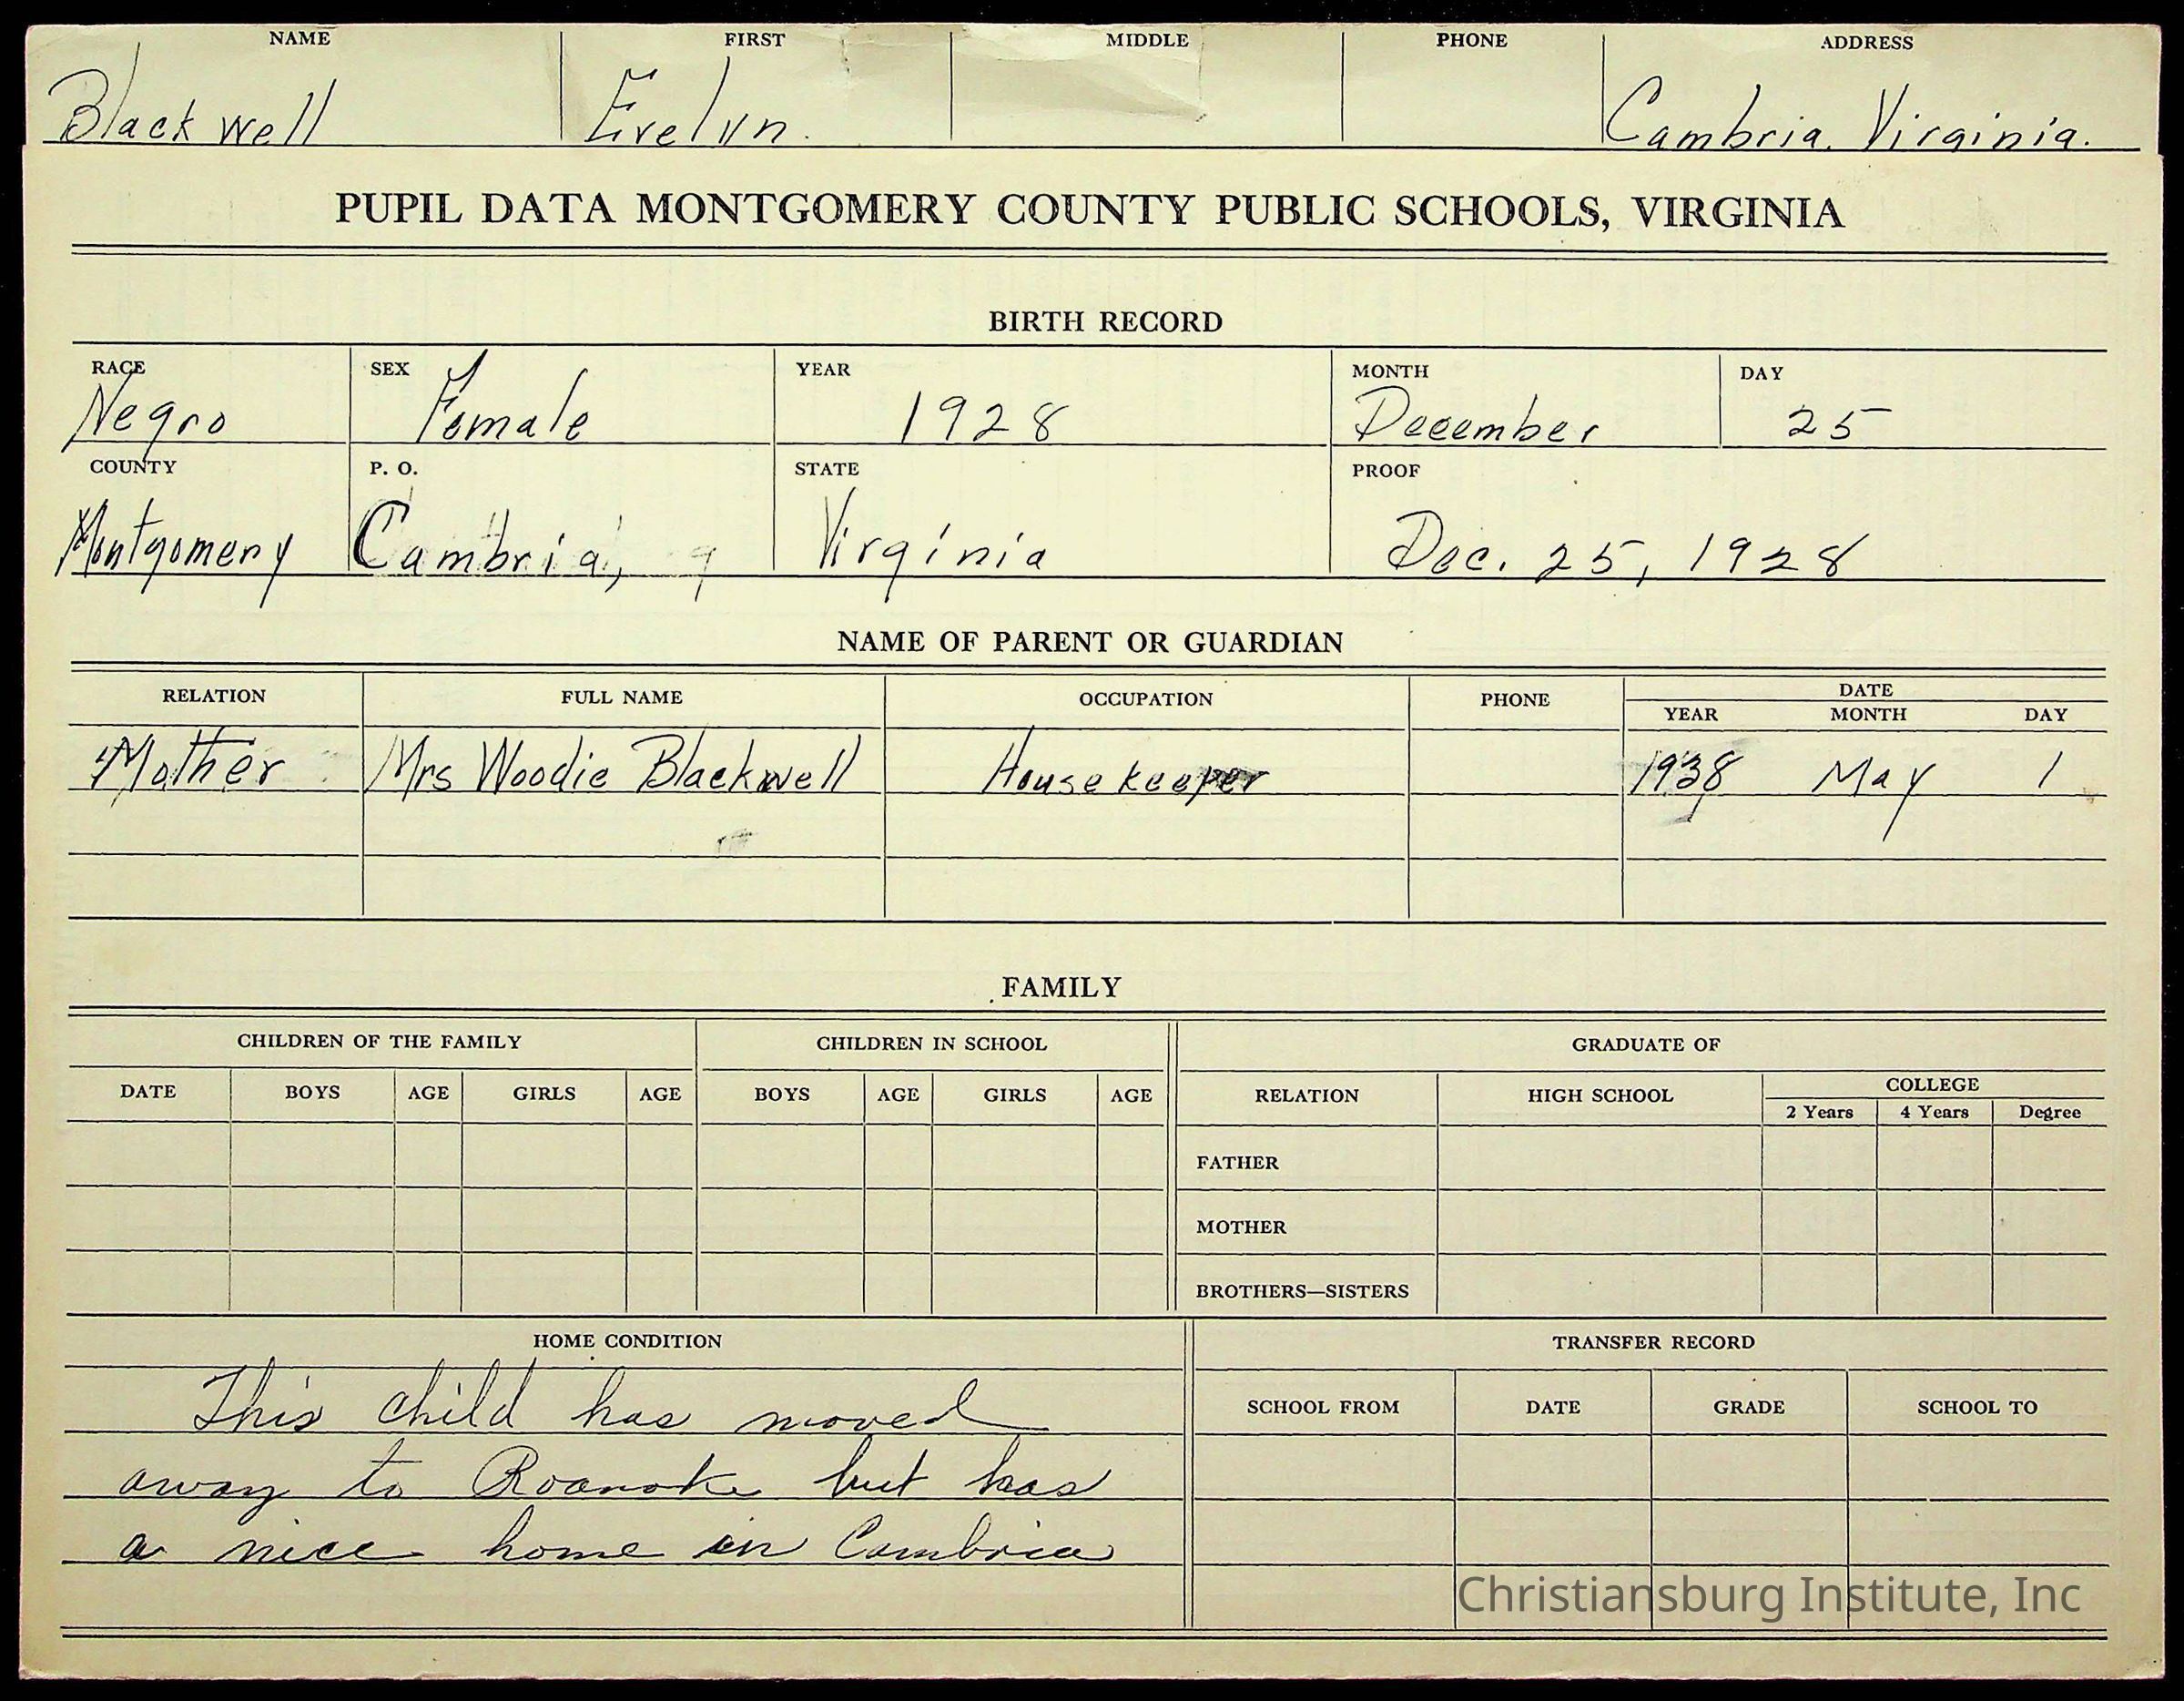 NAME FIRST MIDDLE PHONE ADDRESS
Blackwell Evelyn. Cambria, Virginia.
PUPIL DATA MONTGOMERY COUNTY PUBLIC SCHOOLS, VIRGINIA
BIRTH RECORD
RACE SEX YEAR MONTH DAY
Negro Female 1928 December 25
COUNTY P. O. STATE PROOF
Montgomery Cambria, Virginia Dec. 25, 1928
NAME OF PARENT OR GUARDIAN
RELATION FULL NAME OCCUPATION PHONE DATE
YEAR MONTH DAY
Mother Mrs Woodie Blackwell Housekeeper 1938 May 1
FAMILY
CHILDREN OF THE FAMILY CHILDREN IN SCHOOL GRADUATE OF
DATE BOYS AGE GIRLS AGE BOYS AGE GIRLS AGE RELATION HIGH SCHOOL COLLEGE
2 Years 4 Years Degree
FATHER
MOTHER
BROTHERS—SISTERS
HOME CONDITION TRANSFER RECORD
SCHOOL FROM DATE GRADE SCHOOL TO
This child has moved
away to Roanoke but has
a nice home in Cambria
Christiansburg Institute, Inc